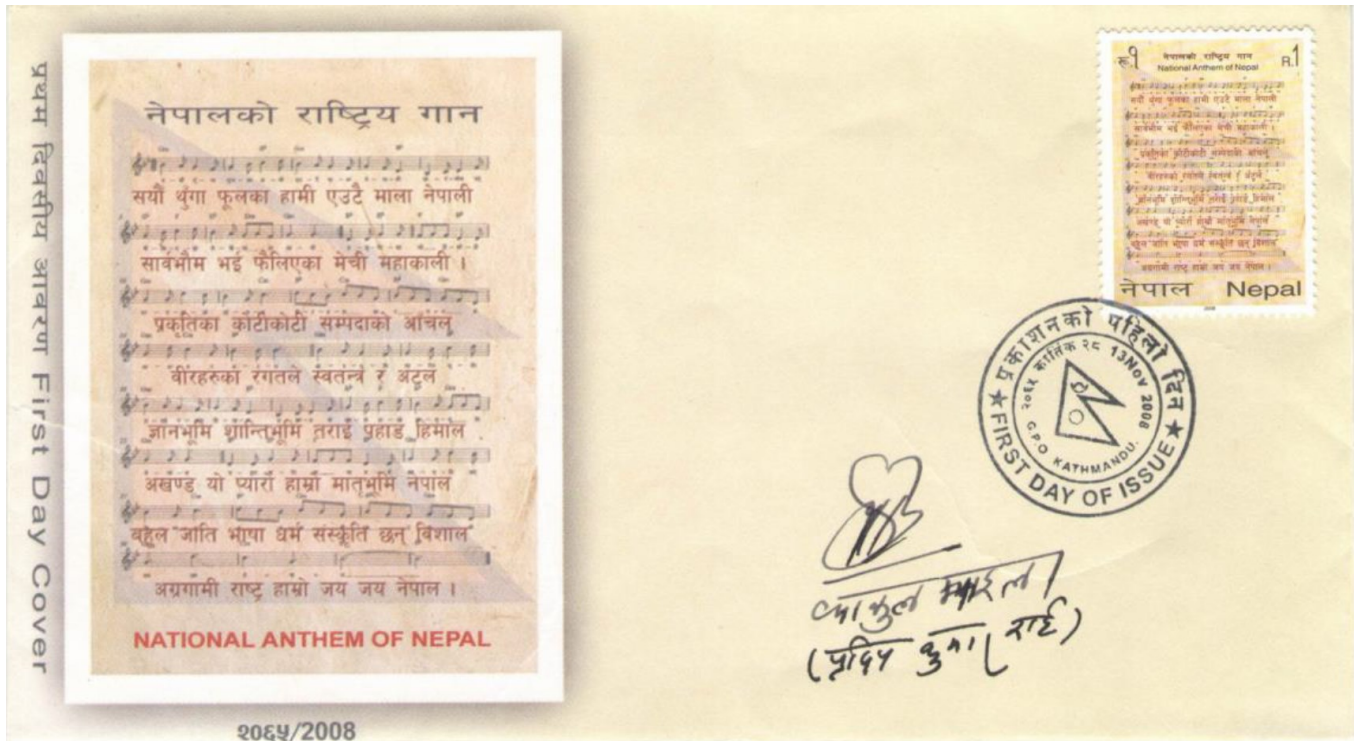 प्रथम दिवसीय आवरण First Day Cover
नेपालको राष्ट्रिय गान
सयौं थुंगा फूलका हामी एउटै माला नेपाली
सार्वभौम भई फैलिएका मेची महाकाली ।
प्रकृतिका कोटीकोटी सम्पदाको आंचल
वीरहरुका रगतले स्वतन्त्र र अटल
ज्ञानभूमि शान्तिभूमि तराई पहाड हिमाल
अखण्ड यो प्यारो हाम्रो मातृभूमि नेपाल
बहुल जाति भाषा धर्म संस्कृति छन् विशाल
अग्रगामी राष्ट्र हाम्रो जय जय नेपाल ।
NATIONAL ANTHEM OF NEPAL
२०६५/2008
रू.१ नेपालको राष्ट्रिय गान R.1
National Anthem of Nepal
सयौं थुंगा फूलका हामी एउटै माला नेपाली
सार्वभौम भई फैलिएका मेची महाकाली ।
प्रकृतिका कोटीकोटी सम्पदाको आंचल
वीरहरुका रगतले स्वतन्त्र र अटल
ज्ञानभूमि शान्तिभूमि तराई पहाड हिमाल
अखण्ड यो प्यारो हाम्रो मातृभूमि नेपाल
बहुल जाति भाषा धर्म संस्कृति छन् विशाल
अग्रगामी राष्ट्र हाम्रो जय जय नेपाल ।
नेपाल Nepal
2008
प्रकाशनको पहिलो दिन
२०६५ कार्तिक २८ 13 Nov 2008
G.P.O KATHMANDU.
FIRST DAY OF ISSUE
व्याकुल माइला
(प्रदिप कुमार राई)